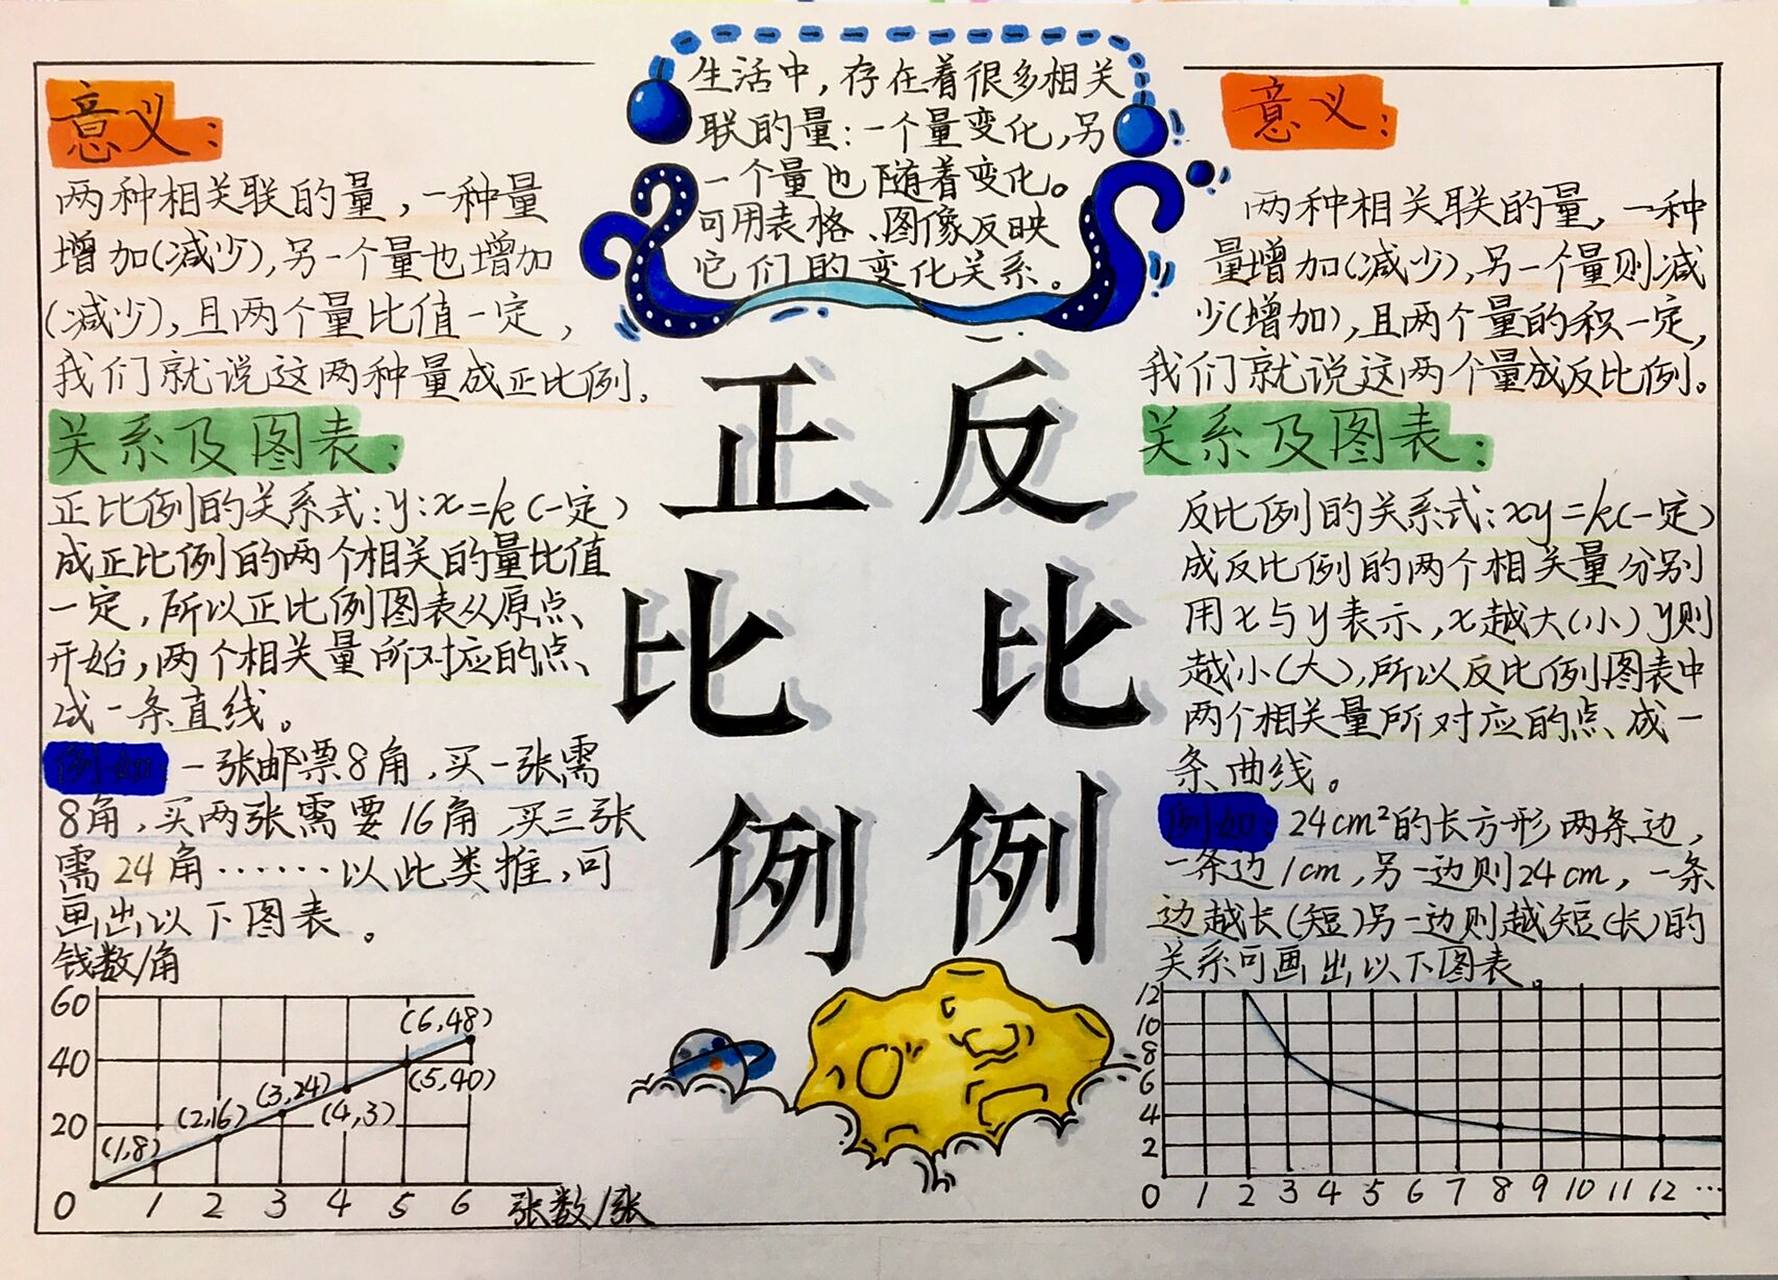 生活中，存在着很多相关
联的量：一个量变化，另
一个量也随着变化。
可用表格、图像反映
它们的变化关系。
正比例
反比例
意义：
两种相关联的量，一种量
增加(减少)，另一个量也增加
(减少)，且两个量比值一定，
我们就说这两种量成正比例。
关系及图表：
正比例的关系式：y:x=k(一定)
成正比例的两个相关的量比值
一定，所以正比例图表从原点
开始，两个相关量所对应的点
成一条直线。
例如：一张邮票8角，买一张需
8角，买两张需要16角，买三张
需24角……以此类推，可
画出以下图表。
钱数/角
60
40
20
0 1 2 3 4 5 6 张数/张
(1,8)
(2,16)
(3,24)
(4,3)
(5,40)
(6,48)
意义：
两种相关联的量，一种
量增加(减少)，另一个量则减
少(增加)，且两个量的积一定，
我们就说这两个量成反比例。
关系及图表：
反比例的关系式：xy=k(一定)
成反比例的两个相关量分别
用x与y表示，x越大(小)y则
越小(大)，所以反比例图表中
两个相关量所对应的点成一
条曲线。
例如：24cm²的长方形两条边，
一条边1cm，另一边则24cm，一条
边越长(短)另一边则越短(长)的
关系可画出以下图表。
12
10
8
6
4
2
0 1 2 3 4 5 6 7 8 9 10 11 12 …